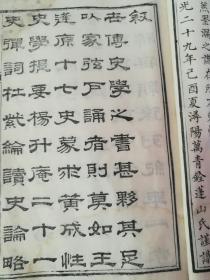 光二十九年己酉夏潯陽萬青銓蓮山氏謹識
敘
世傳史學之書甚夥其足
以家弦戶誦者則莫如王
逢原十七史蒙求黃成性
史學提要楊升庵二十一
史彈詞杜紫綸讀史論略